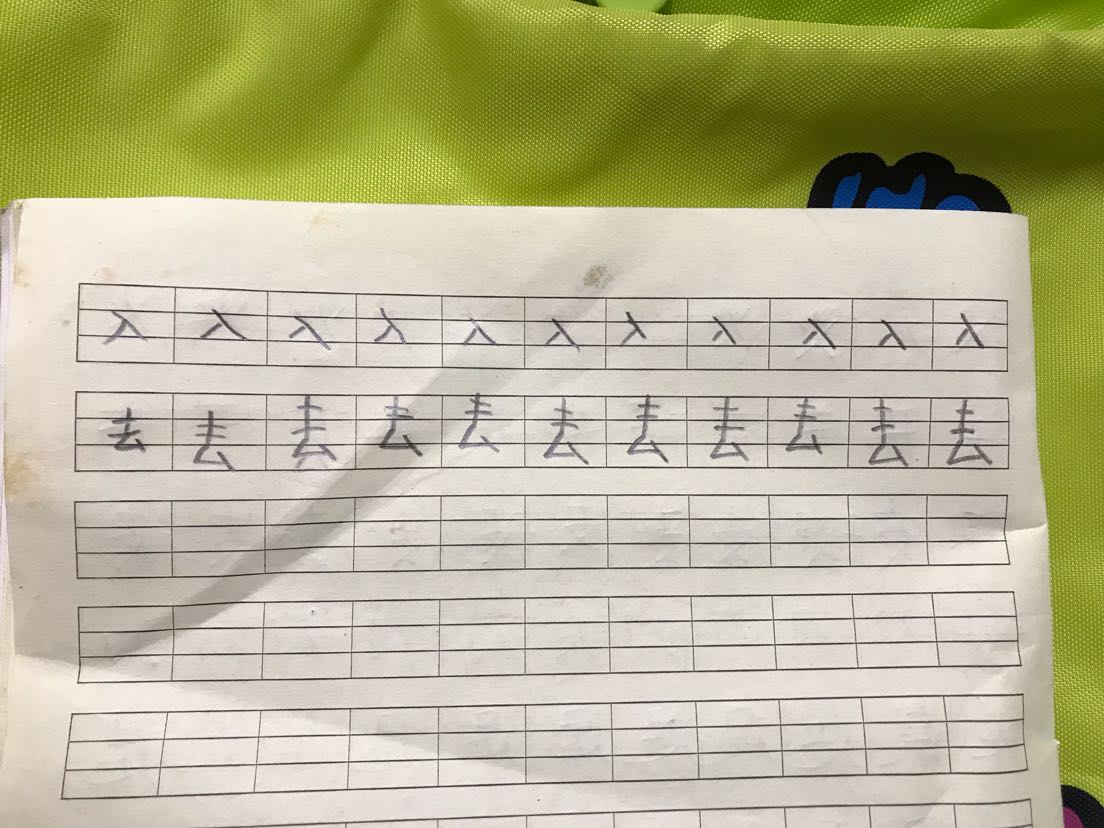 入 入 入 入 入 入 入 入 入 入 入
去 去 去 去 去 去 去 去 去 去 去